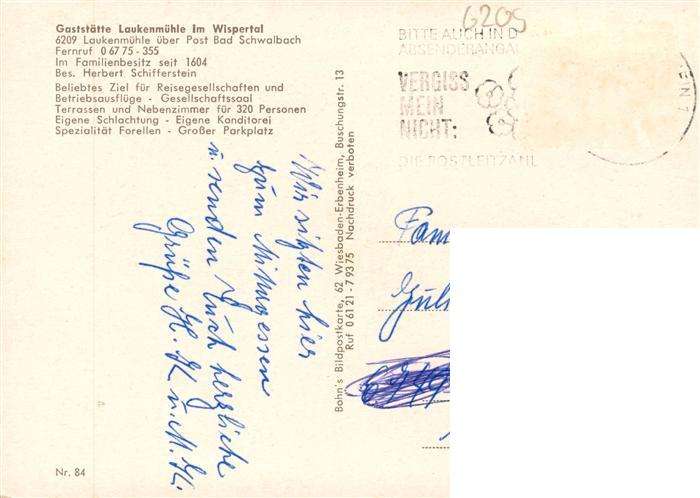 Gaststätte Laukenmühle im Wispertal
6209 Laukenmühle über Post Bad Schwalbach
Fernruf 0 67 75 - 355
Im Familienbesitz seit 1604
Bes. Herbert Schifferstein
Beliebtes Ziel für Reisegesellschaften und
Betriebsausflüge - Gesellschaftssaal
Terrassen und Nebenzimmer für 320 Personen
Eigene Schlachtung - Eigene Konditorei
Spezialität Forellen - Großer Parkplatz
Wir sitzen hier
zum Mittagessen
u. senden Euch herzliche
Grüße H. K u. M. K.
Nr. 84
Bohn's Bildpostkarte, 62 Wiesbaden-Erbenheim, Buschungstr. 13
Ruf 0 61 21 - 7 93 75 Nachdruck verboten
6205
BITTE AUCH IN D
ABSENDERANGA
VERGISS
MEIN
NICHT:
DIE POSTLEITZAHL
Fam